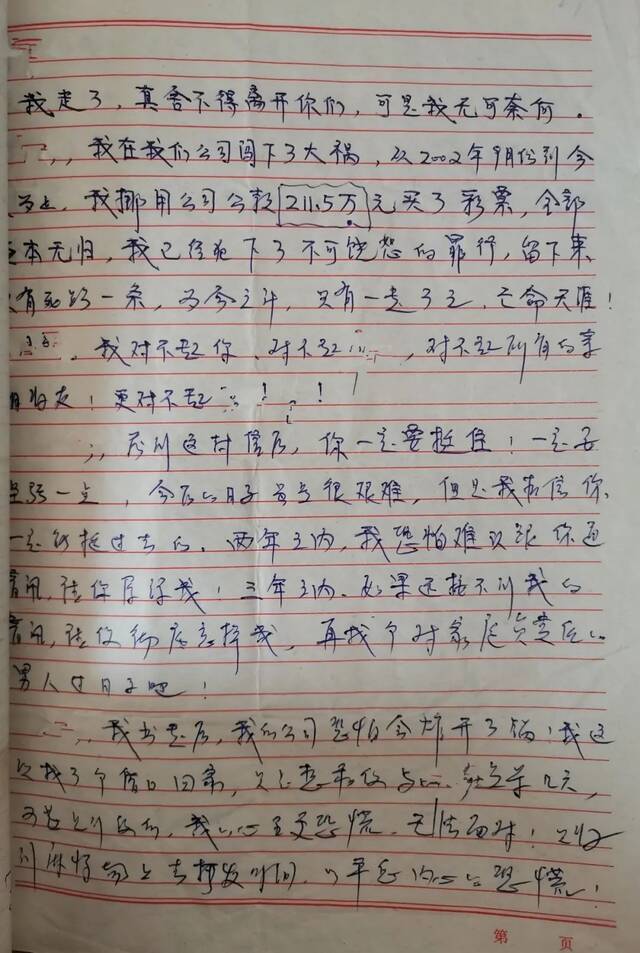 我走了，真舍不得离开你们，可是我无可奈何。
我在我们公司闯下了大祸，从2002年9月份到今
为止，我挪用公司公款211.5万元买了彩票，全部
本无归，我已经犯下了不可饶恕的罪行，留下来
有死路一条，为今之计，只有一走了之，亡命天涯！
我对不起你、对不起，对不起所有的亲
朋好友！更对不起！！
看到这封信后，你一定要挺住！一定要
坚强一点，今后的日子当然很艰难，但是我相信你
一定能挺过去的。两年之内，我恐怕难以跟你通
音讯，请你原谅我！三年之内，如果还接不到我的
音讯，请你彻底忘掉我，再找个对家庭负责任的
男人过日子吧！
我出走后，我们公司恐怕会炸开了锅！我这
次找了个借口回家，只是想和你
我的心里更恐慌，无法面对！只好
到麻将场上去打发时间，以平息内心的恐慌！
第 页